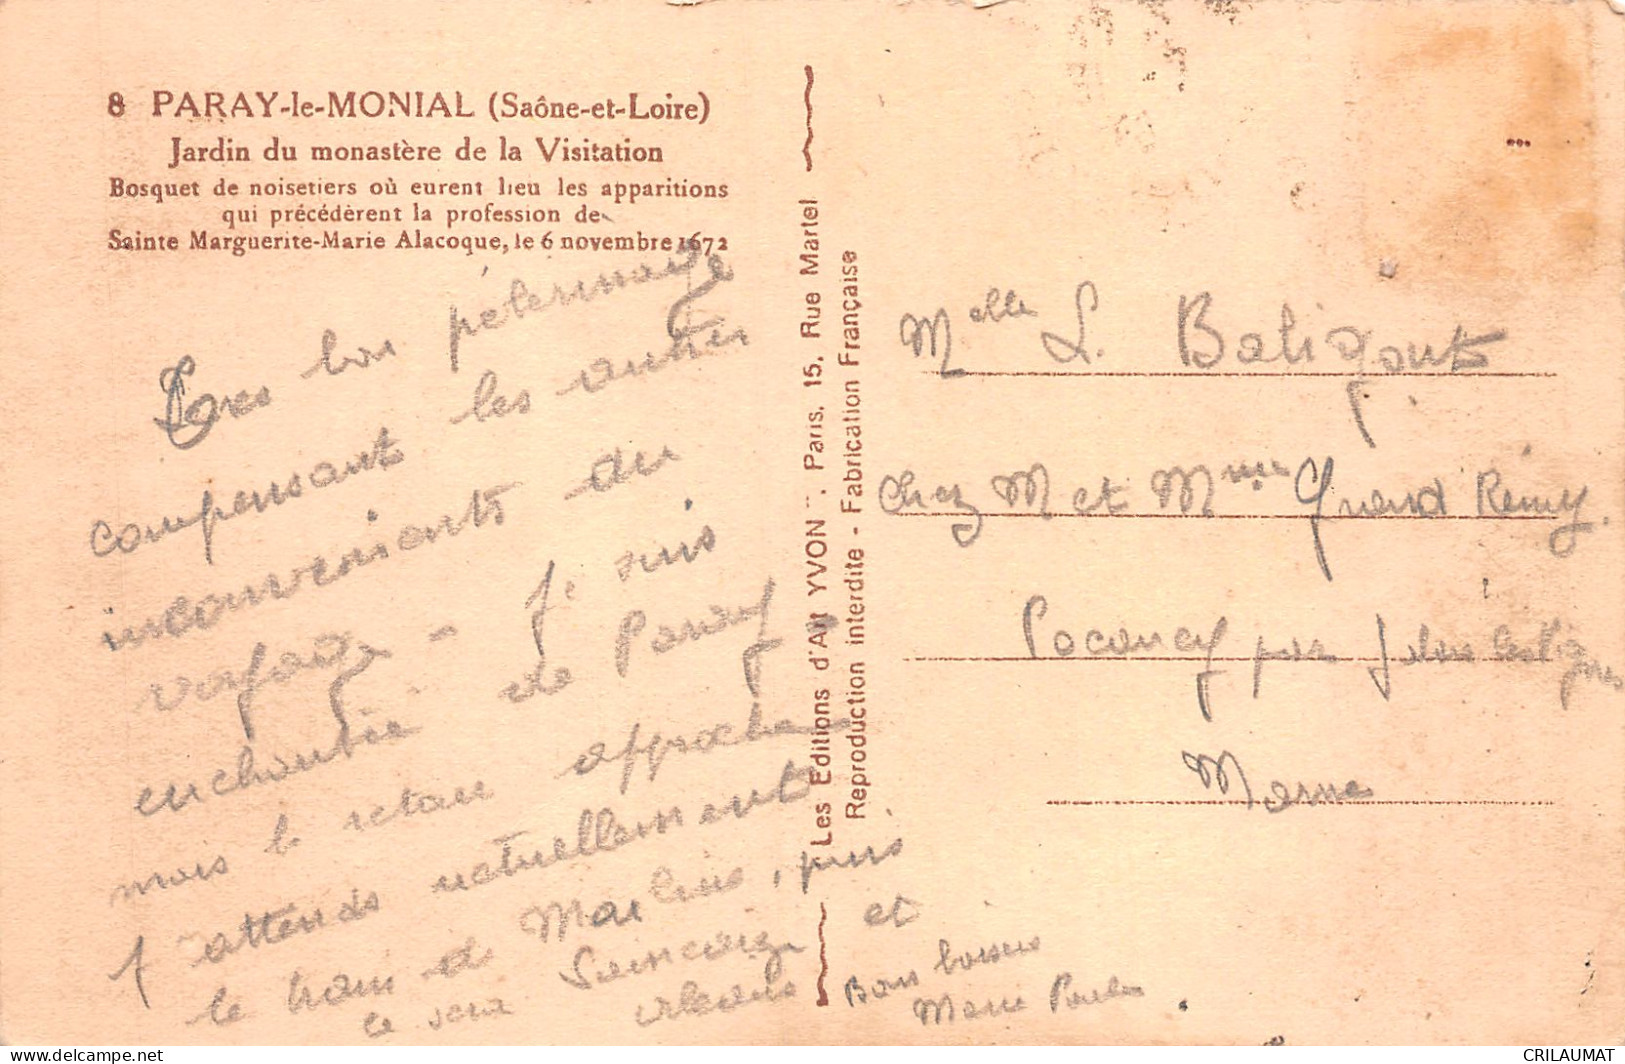 8 PARAY-le-MONIAL (Saône-et-Loire)
Jardin du monastère de la Visitation
Bosquet de noisetiers où eurent lieu les apparitions
qui précédèrent la profession de
Sainte Marguerite-Marie Alacoque, le 6 novembre 1672
Très bon pélerinage
compensant les
inconvenients du
voyage - Je suis
enchantée de Paray
mais le retour approche
J'attends actuellement
le train de Moulins, puis
ce sera Saincaize et
orléans Bons baisers
Marie Paule
Les Editions d'Art YVON. Paris, 15, Rue Martel
Reproduction interdite - Fabrication Française
Melle L. Baligant
chez M et Mme Grand Rémy.
Pocancy par Jalons les Vignes
Marne
CRILAUMAT